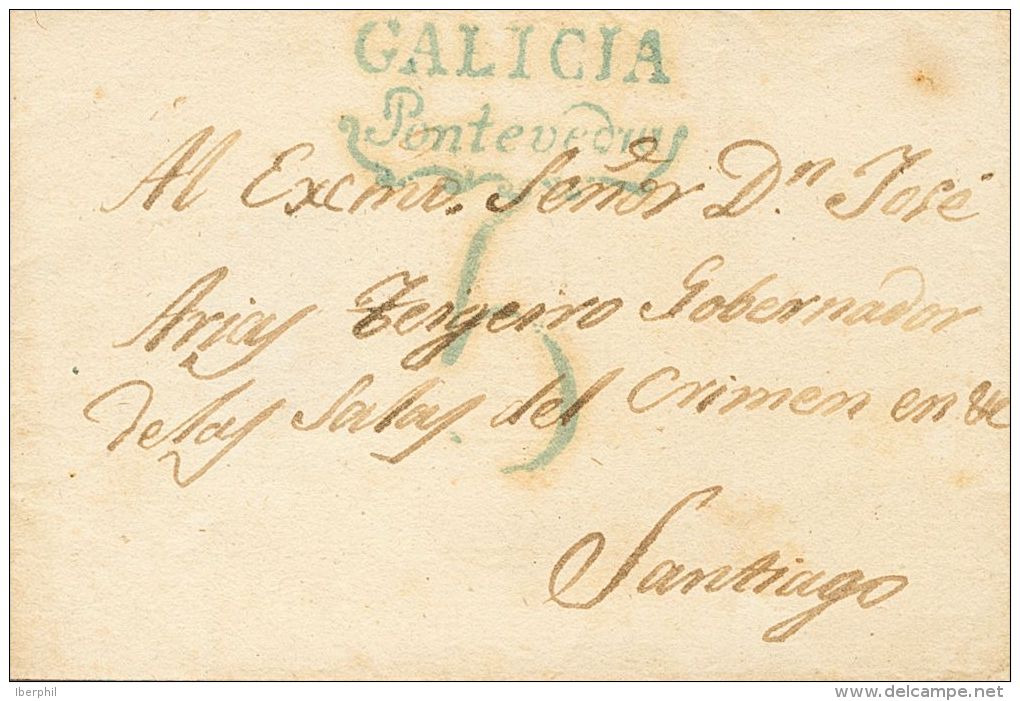 GALICIA
Pontevedra
Al Excmo. Señor Dn. José
5
Arias Teigeiro Gobernador
de las Salas del Crimen en &c
Santiago
Iberphil
www.delcampe.net